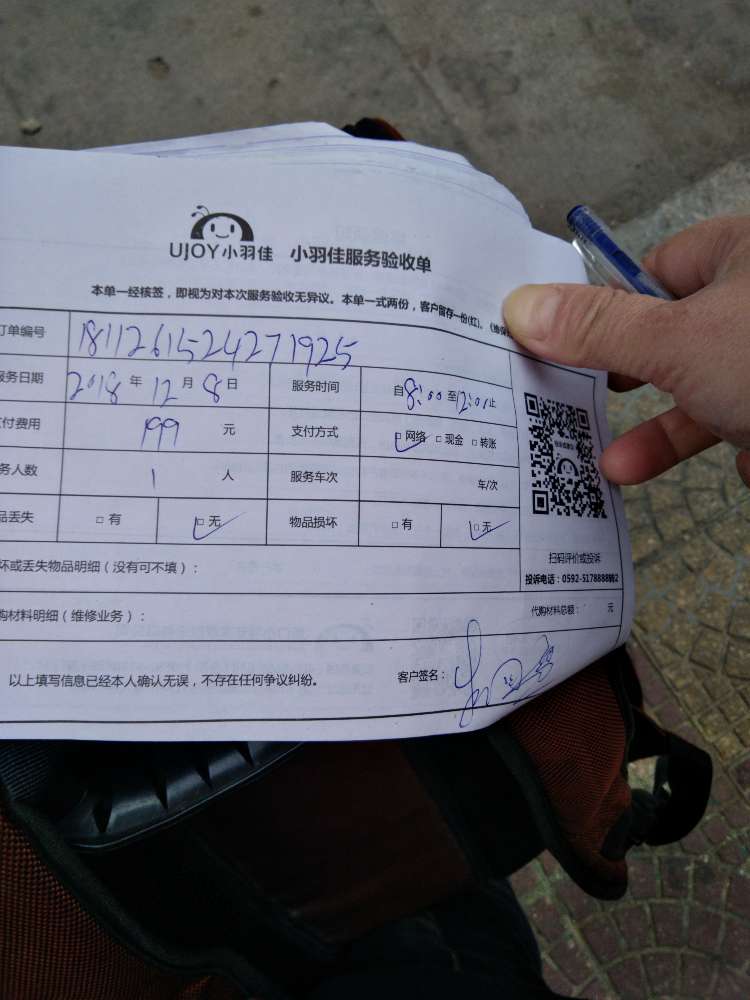 UJOY小羽佳 小羽佳服务验收单
本单一经核签，即视为对本次服务验收无异议。本单一式两份，客户留存一份(红)。
订单编号 181126152427​1925
服务日期 2018 年 12 月 8 日 服务时间 自 8:00 至 12:01 止
付费用 199 元 支付方式 网络 现金 转账
务人数 1 人 服务车次 车/次
品丢失 有 无 物品损坏 有 无
坏或丢失物品明细（没有可不填）：
扫码评价或投诉
投诉电话：0592-5178888
购材料明细（维修业务）： 代购材料总额： 元
以上填写信息已经本人确认无误，不存在任何争议纠纷。 客户签名：